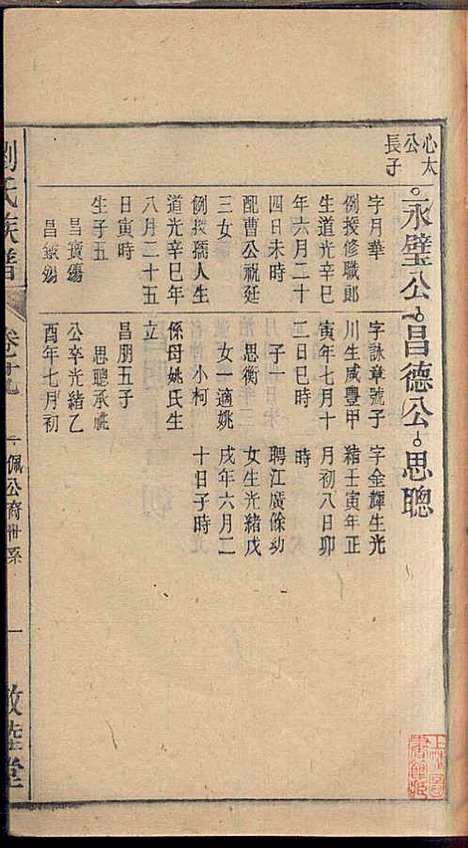 心太
公
長子
永璧公 昌德公 思聰
字月華 字詠章號子 字金輝生光
例授修職郎 川生咸豐甲 緒壬寅年正
生道光辛巳 寅年七月十 月初八日卯
年六月二十 二日巳時 時
四日未時 子一 聘江廣餘幼
配曹公祝廷 思衡 女生光緒戊
三女 女一適姚 戌年六月二
例授孺人生 小柯 十日子時
道光辛巳年 係母姚氏生
八月二十五 立
日寅時 昌朋五子
生子五 思聰承祧
昌寶殤 公卒光緒乙
殤 酉年七月初
劉氏族譜 卷十九 佩公 世系 一 堂
上海圖書館藏